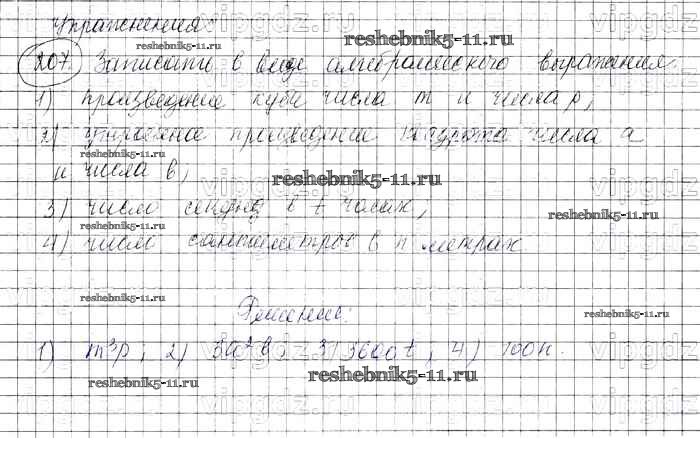 Упражнения
reshebnik5-11.ru
207 Записать в виде алгебраического выражения
reshebnik5-11.ru
reshebnik5-11.ru
1) произведение куба числа m и числа p;
2) утроенное произведение квадрата числа a
и числа b;
reshebnik5-11.ru
3) число секунд в t часах;
reshebnik5-11.ru
reshebnik5-11.ru
4) число сантиметров в n метрах
reshebnik5-11.ru
Решение:
reshebnik5-11.ru
1) m³p; 2) 3a²b; 3) 3600t; 4) 100n.
reshebnik5-11.ru
reshebnik5-11.ru